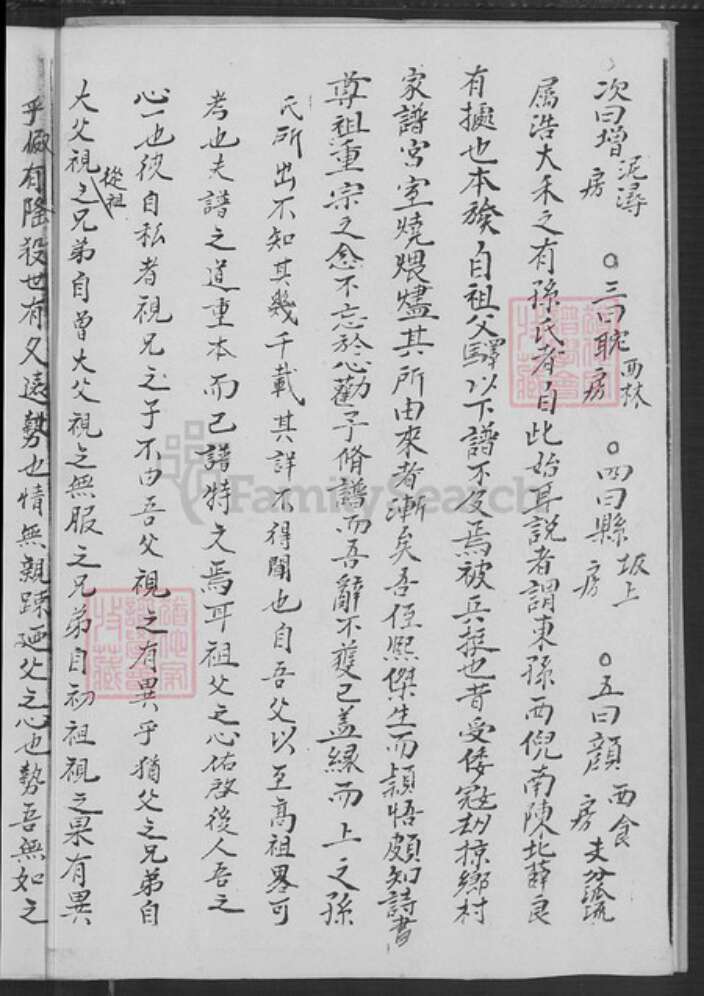 次曰增泥潯房 ○三曰聪西林房 ○四曰縣坂上房 ○五曰顔西食房 支分派流
属浩大禾之有孫氏者自此始耳説者謂東孫西倪南陳北薛良
有據也本族自祖父驛以下譜不及焉被兵摧也昔受倭寇劫掠鄉村
家譜宮室燒煨燼其所由來者漸矣吾侄熙傑生而頴悟頗知詩書
尊祖重宗之念不忘於心勸予脩譜而吾辭不獲已盖緣而上之孫
氏所出不知其幾千載其詳不得聞也自吾父以至高祖畧可
考也夫譜之道重本而已譜特文焉耳祖父之心佑啟後人吾之
心一也彼自私者視兄之子不內吾父視之有異乎猶父之兄弟自
大父視之從祖兄弟自曾大父視之無服之兄弟自初祖視之果有異
乎俶有隆殺世有久遠勢也情無親踈廼父之心也勢吾無如之
FamilySearch